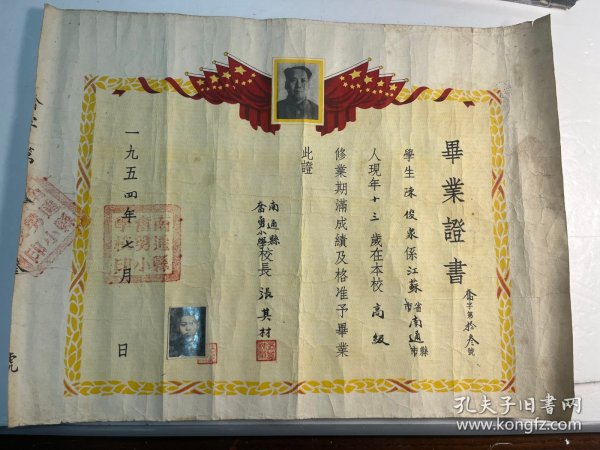 畢業證書
喬字第拾叁號
學生陳俊泉係江蘇省市南通縣市
人現年十三歲在本校高級
修業期滿成績及格准予畢業
此證
南通縣
喬勇小學校長張其材
一九五四年七月日
字第
號
孔夫子旧书网
www.kongfz.com